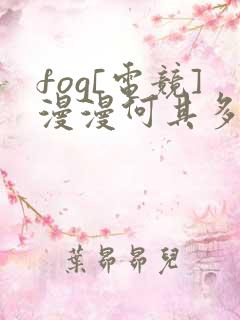 fog[電競]
漫漫何其多
葉昂昂兒